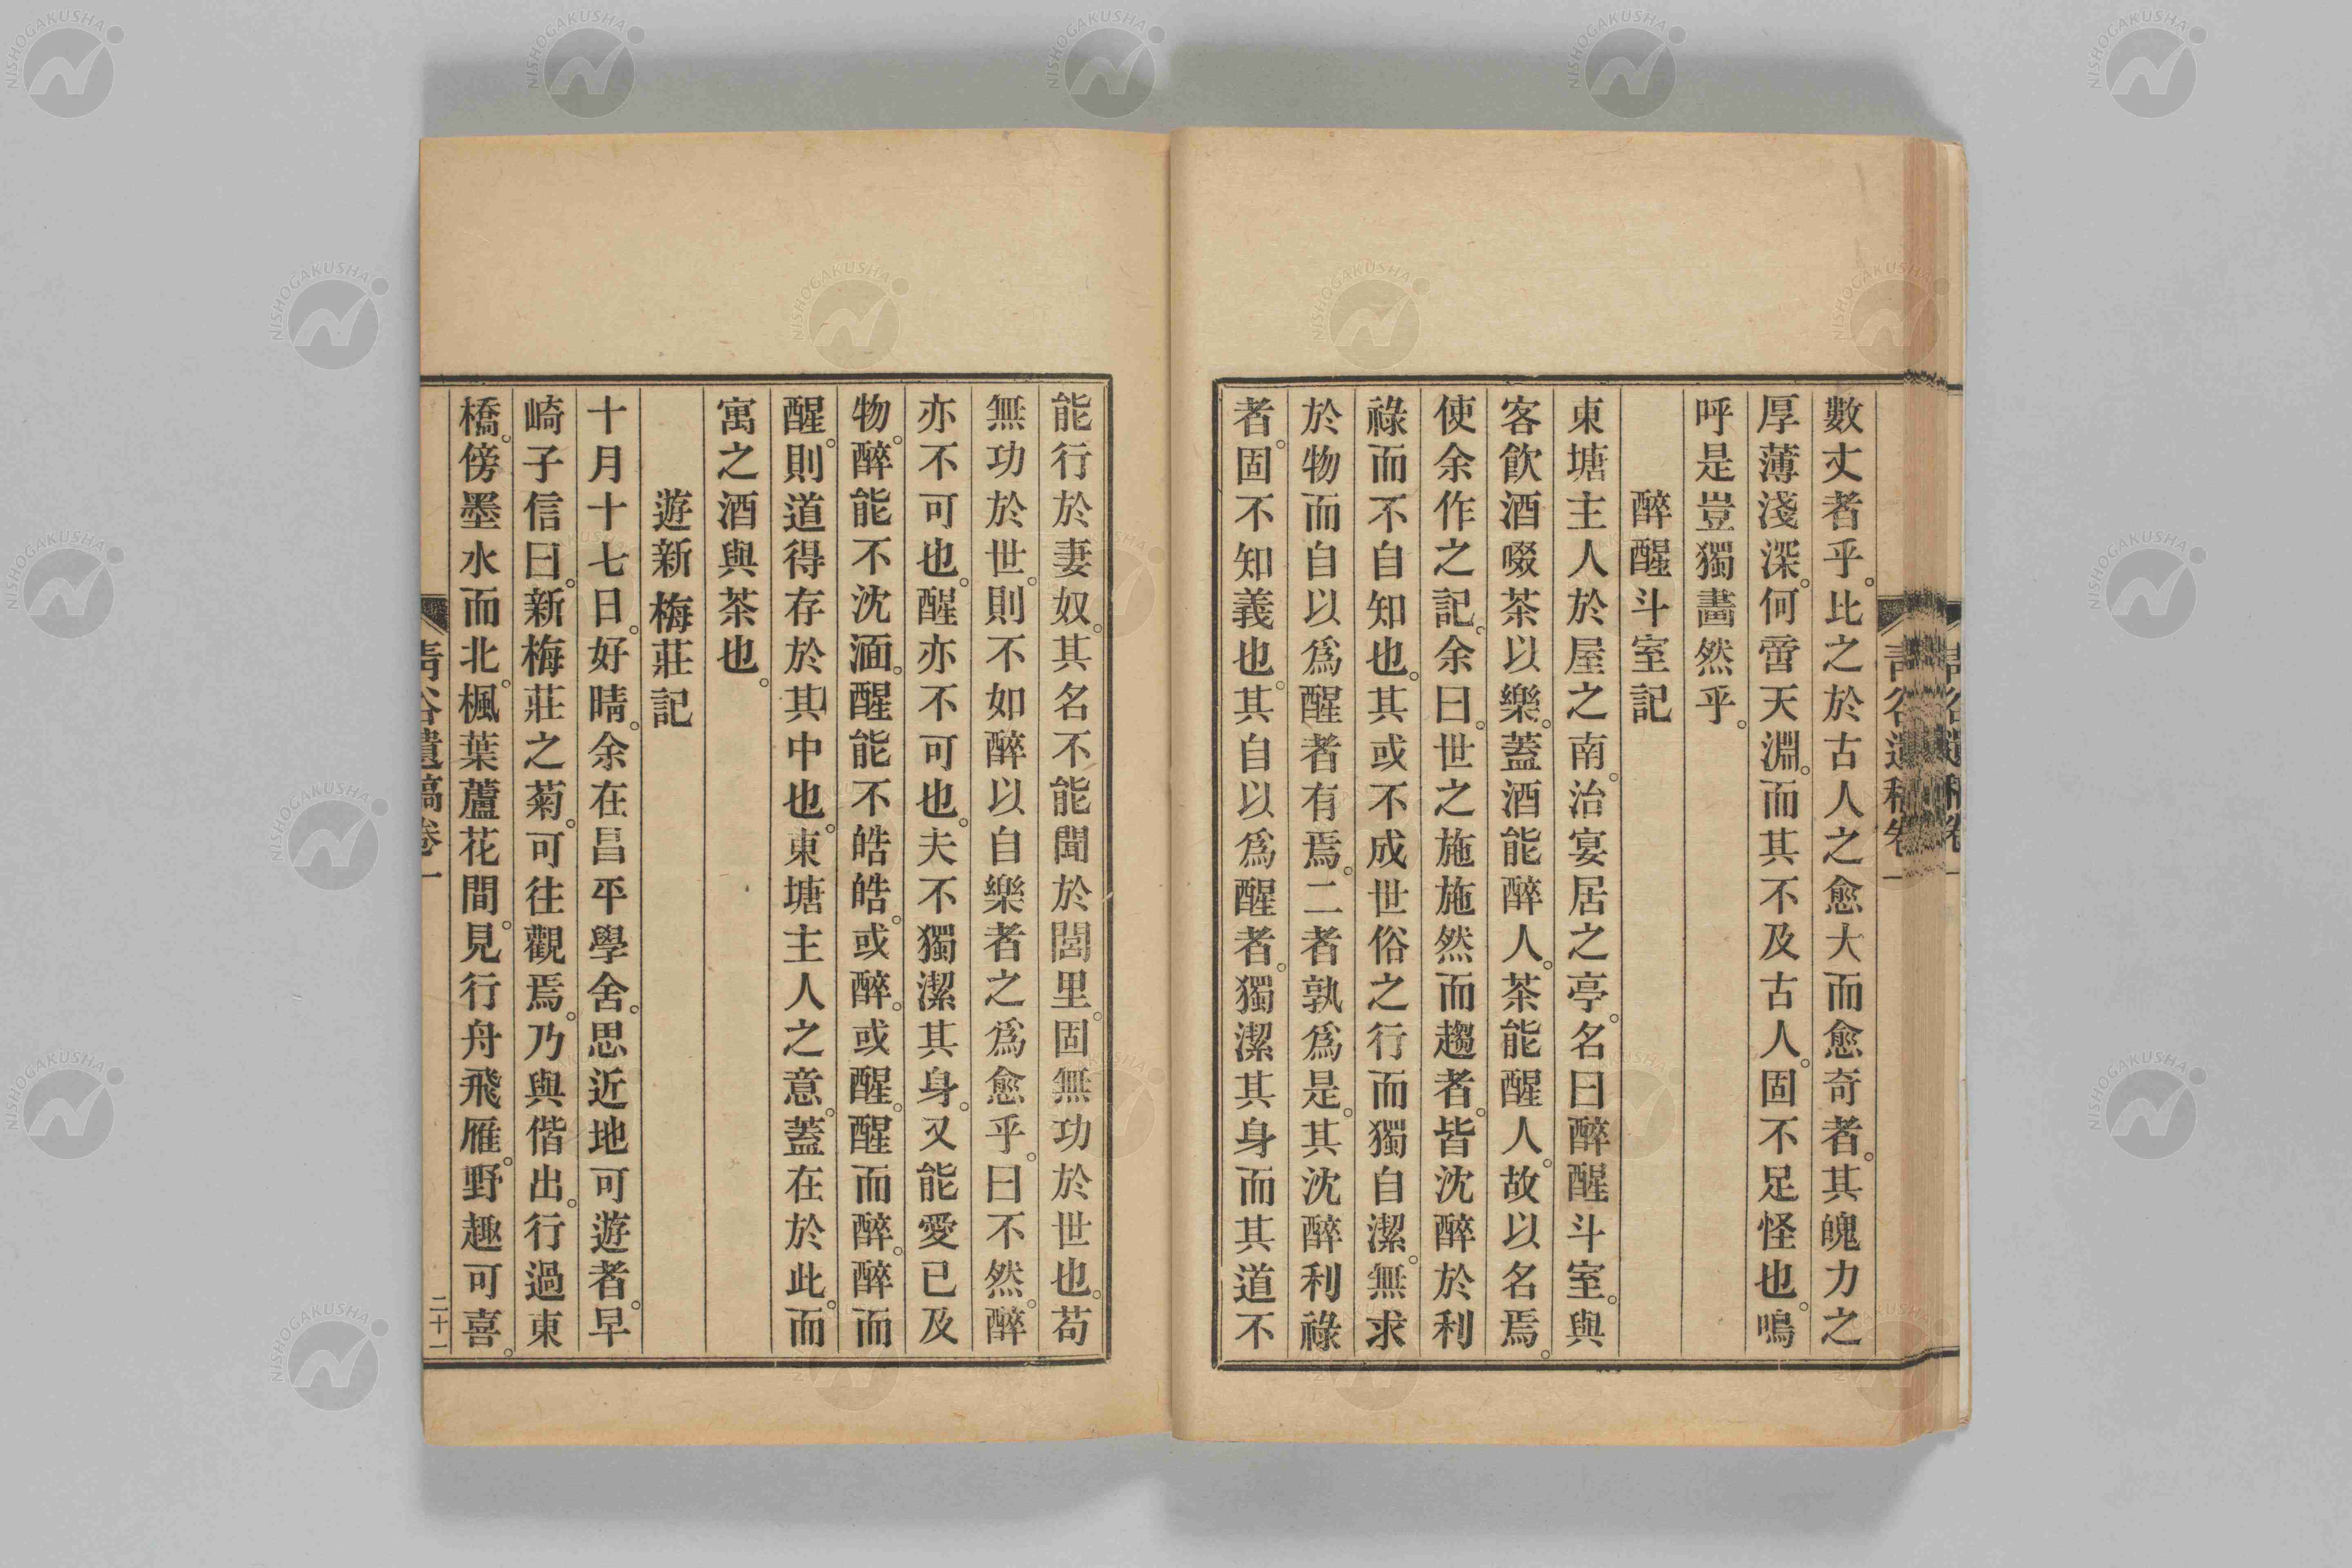 數丈者乎。比之於古人之愈大而愈奇者。其魄力之
厚薄淺深。何啻天淵。而其不及古人。固不足怪也。嗚
呼是豈獨畵然乎。
醉醒斗室記
東塘主人於屋之南。治宴居之亭。名曰醉醒斗室。與
客飮酒啜茶以樂。蓋酒能醉人。茶能醒人。故以名焉。
使余作之記。余曰。世之施施然而趨者。皆沈醉於利
祿而不自知也。其或不成世俗之行而獨自潔。無求
於物而自以爲醒者有焉。二者孰爲是。其沈醉利祿
者。固不知義也。其自以爲醒者。獨潔其身而其道不
能行於妻奴。其名不能聞於閭里。固無功於世也。苟
無功於世。則不如醉以自樂者之爲愈乎。曰不然。醉
亦不可也。醒亦不可也。夫不獨潔其身。又能愛已及
物。醉能不沈湎。醒能不皓皓。或醉。或醒。醒而醉。醉而
醒。則道得存於其中也。東塘主人之意。蓋在於此。而
寓之酒與茶也。
遊新梅莊記
十月十七日。好晴。余在昌平學舍。思近地可遊者。早
崎子信曰。新梅莊之菊。可往觀焉。乃與偕出。行過東
橋。傍墨水而北。楓葉蘆花間。見行舟飛雁。野趣可喜。
青谷遺稿卷一
二十一
NISHOGAKUSHA